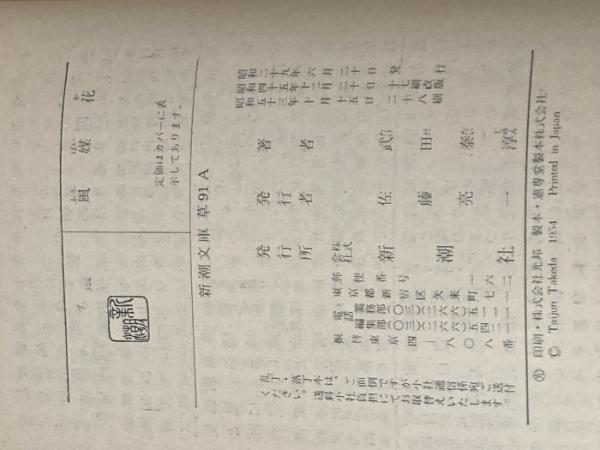 風媒花
ふう ばい か
定価はカバーに表
示してあります。
新潮文庫 草91A
昭和二十九年六月二十日発行
昭和四十五年十二月二十日十七刷改版
昭和五十三年十月十五日二十八刷
著者 武田泰淳
発行者 佐藤亮一
発行所 株式会社 新潮社
郵便番号 一六二
東京都新宿区矢来町七一
電話 業務部(〇三)(二六六)五一一一
編集部(〇三)(二六六)五四一一
振替東京四―八〇八番
乱丁・落丁本は、ご面倒ですが小社通信係宛ご送付
ください。送料小社負担にてお取替えいたします。
印刷・株式会社光邦 製本・憲専堂製本株式会社
© Taijun Takeda 1954 Printed in Japan
新潮